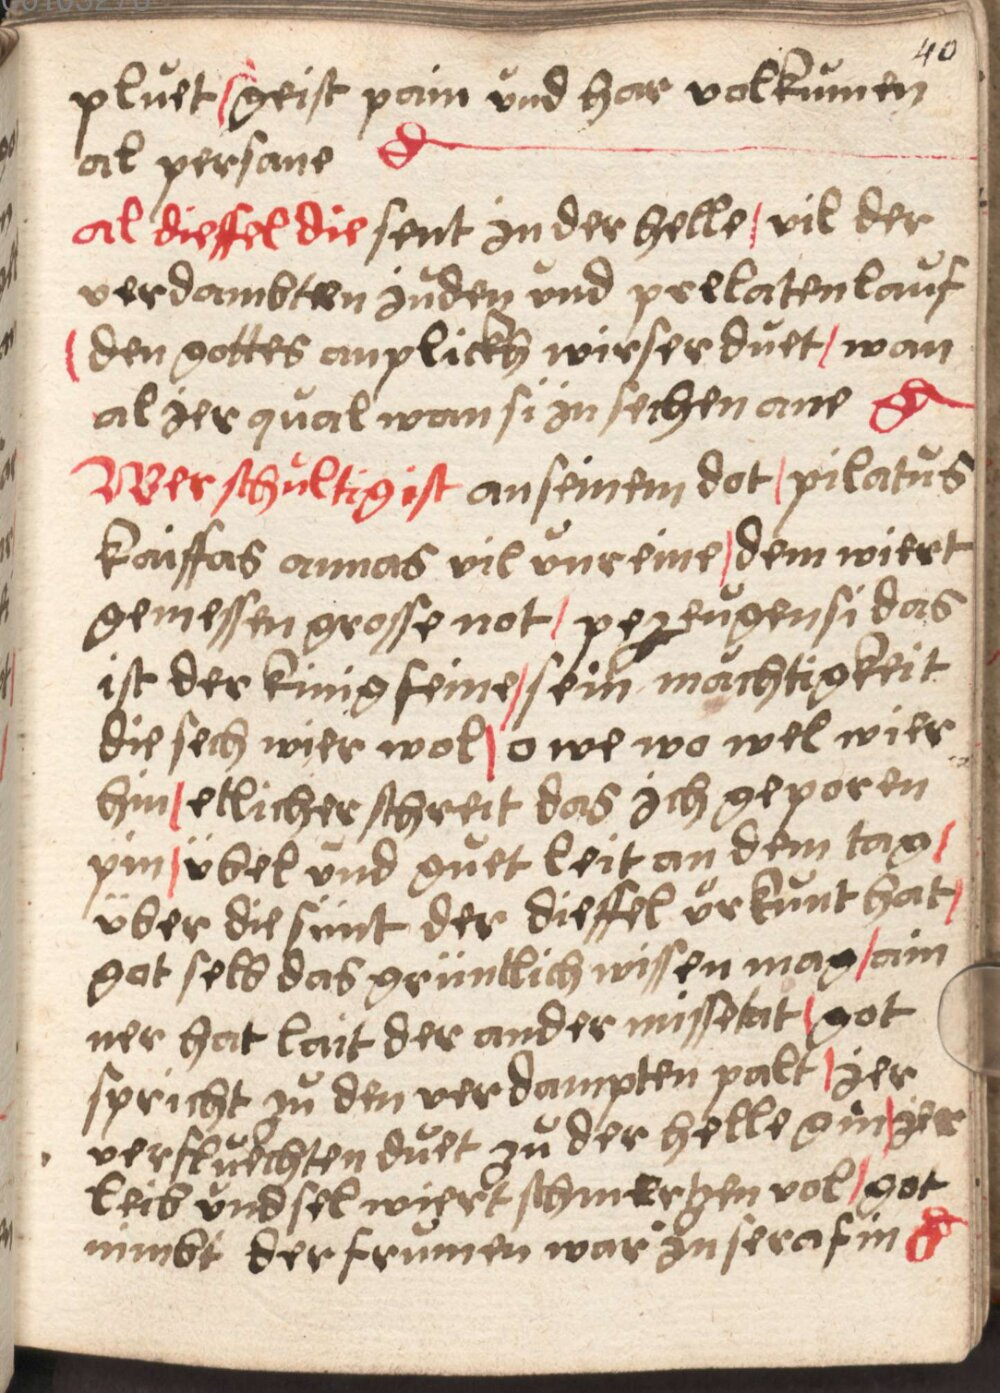 40
pluet / geist pain und har volkumen
al persane
al dieffel die sent in der helle / vil der
verdambten juden und prelaten lauf
/ den gottes anplickh wirser duet / wan
al jer qual wan si jn sechen ane
Wer schultig ist an seinem dot / pilatus
kaiffas annas vil unreine / dem wiert
gemessen grosse not / pezeugen si das
ist der kinig feine / sein mächtigkeit
die sech wier wol / o we wo wel wier
hin / etlicher schreit das jch geporen
pin / übel und guet leit an dem tag /
über die sünt der dieffel urkunt hat /
got selb das grüntlich wissen mag / ain
ner hat lait der ander missetat / got
spricht zu den verdampten palt / jer
verfluechten duet zu der helle gin / jer
leib und sel wiert schmertzen vol / got
nimbt der frumen war jn serafin